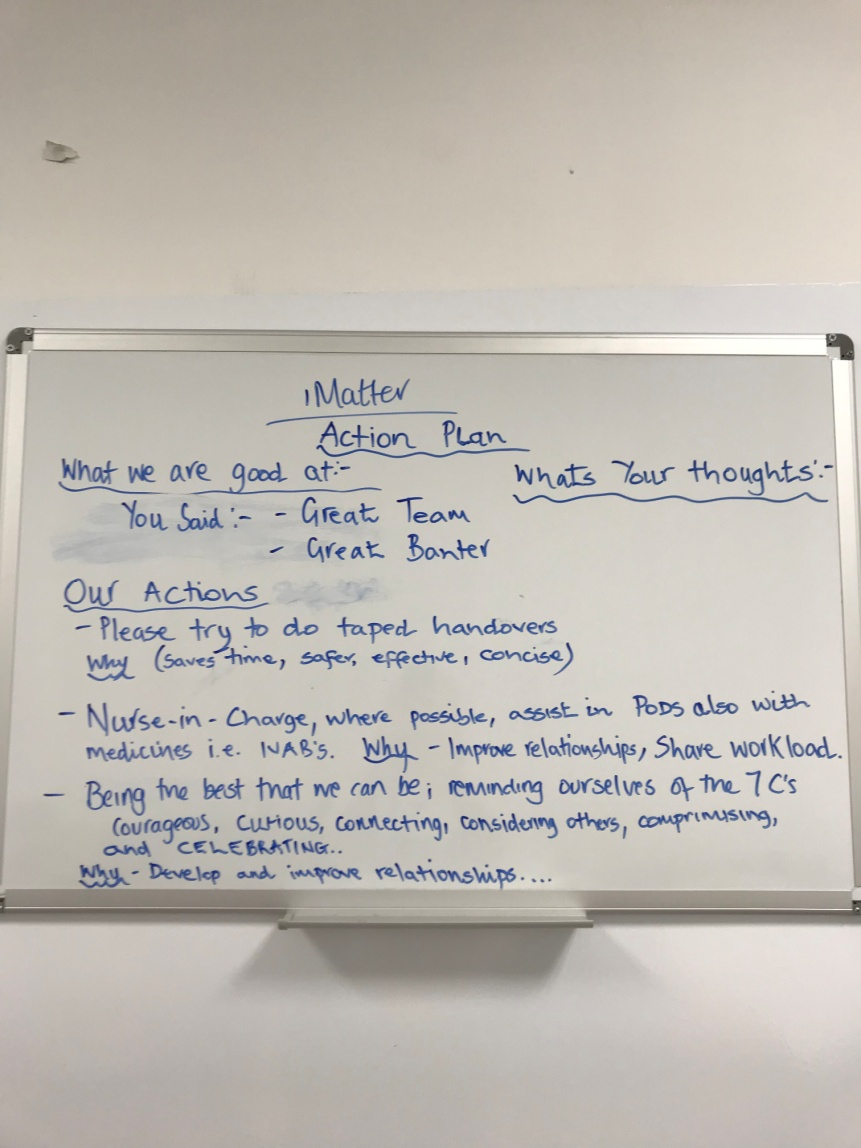 iMatter
Action Plan
What we are good at:-
Whats Your thoughts:-
You Said:- - Great Team
- Great Banter
Our Actions
- Please try to do taped handovers
Why (saves time, safer, effective, concise)
- Nurse-in-Charge, where possible, assist in PODS also with
medicines i.e. IVAB's. Why - Improve relationships, Share workload.
- Being the best that we can be; reminding ourselves of the 7 C's
Courageous, curious, connecting, considering others, comprimising,
and CELEBRATING..
Why - Develop and improve relationships....